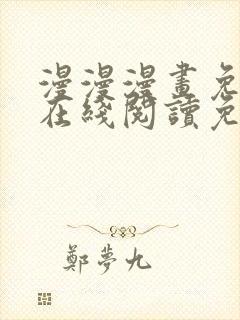 漫漫漫畫免
在綫閱讀免
鄭夢九